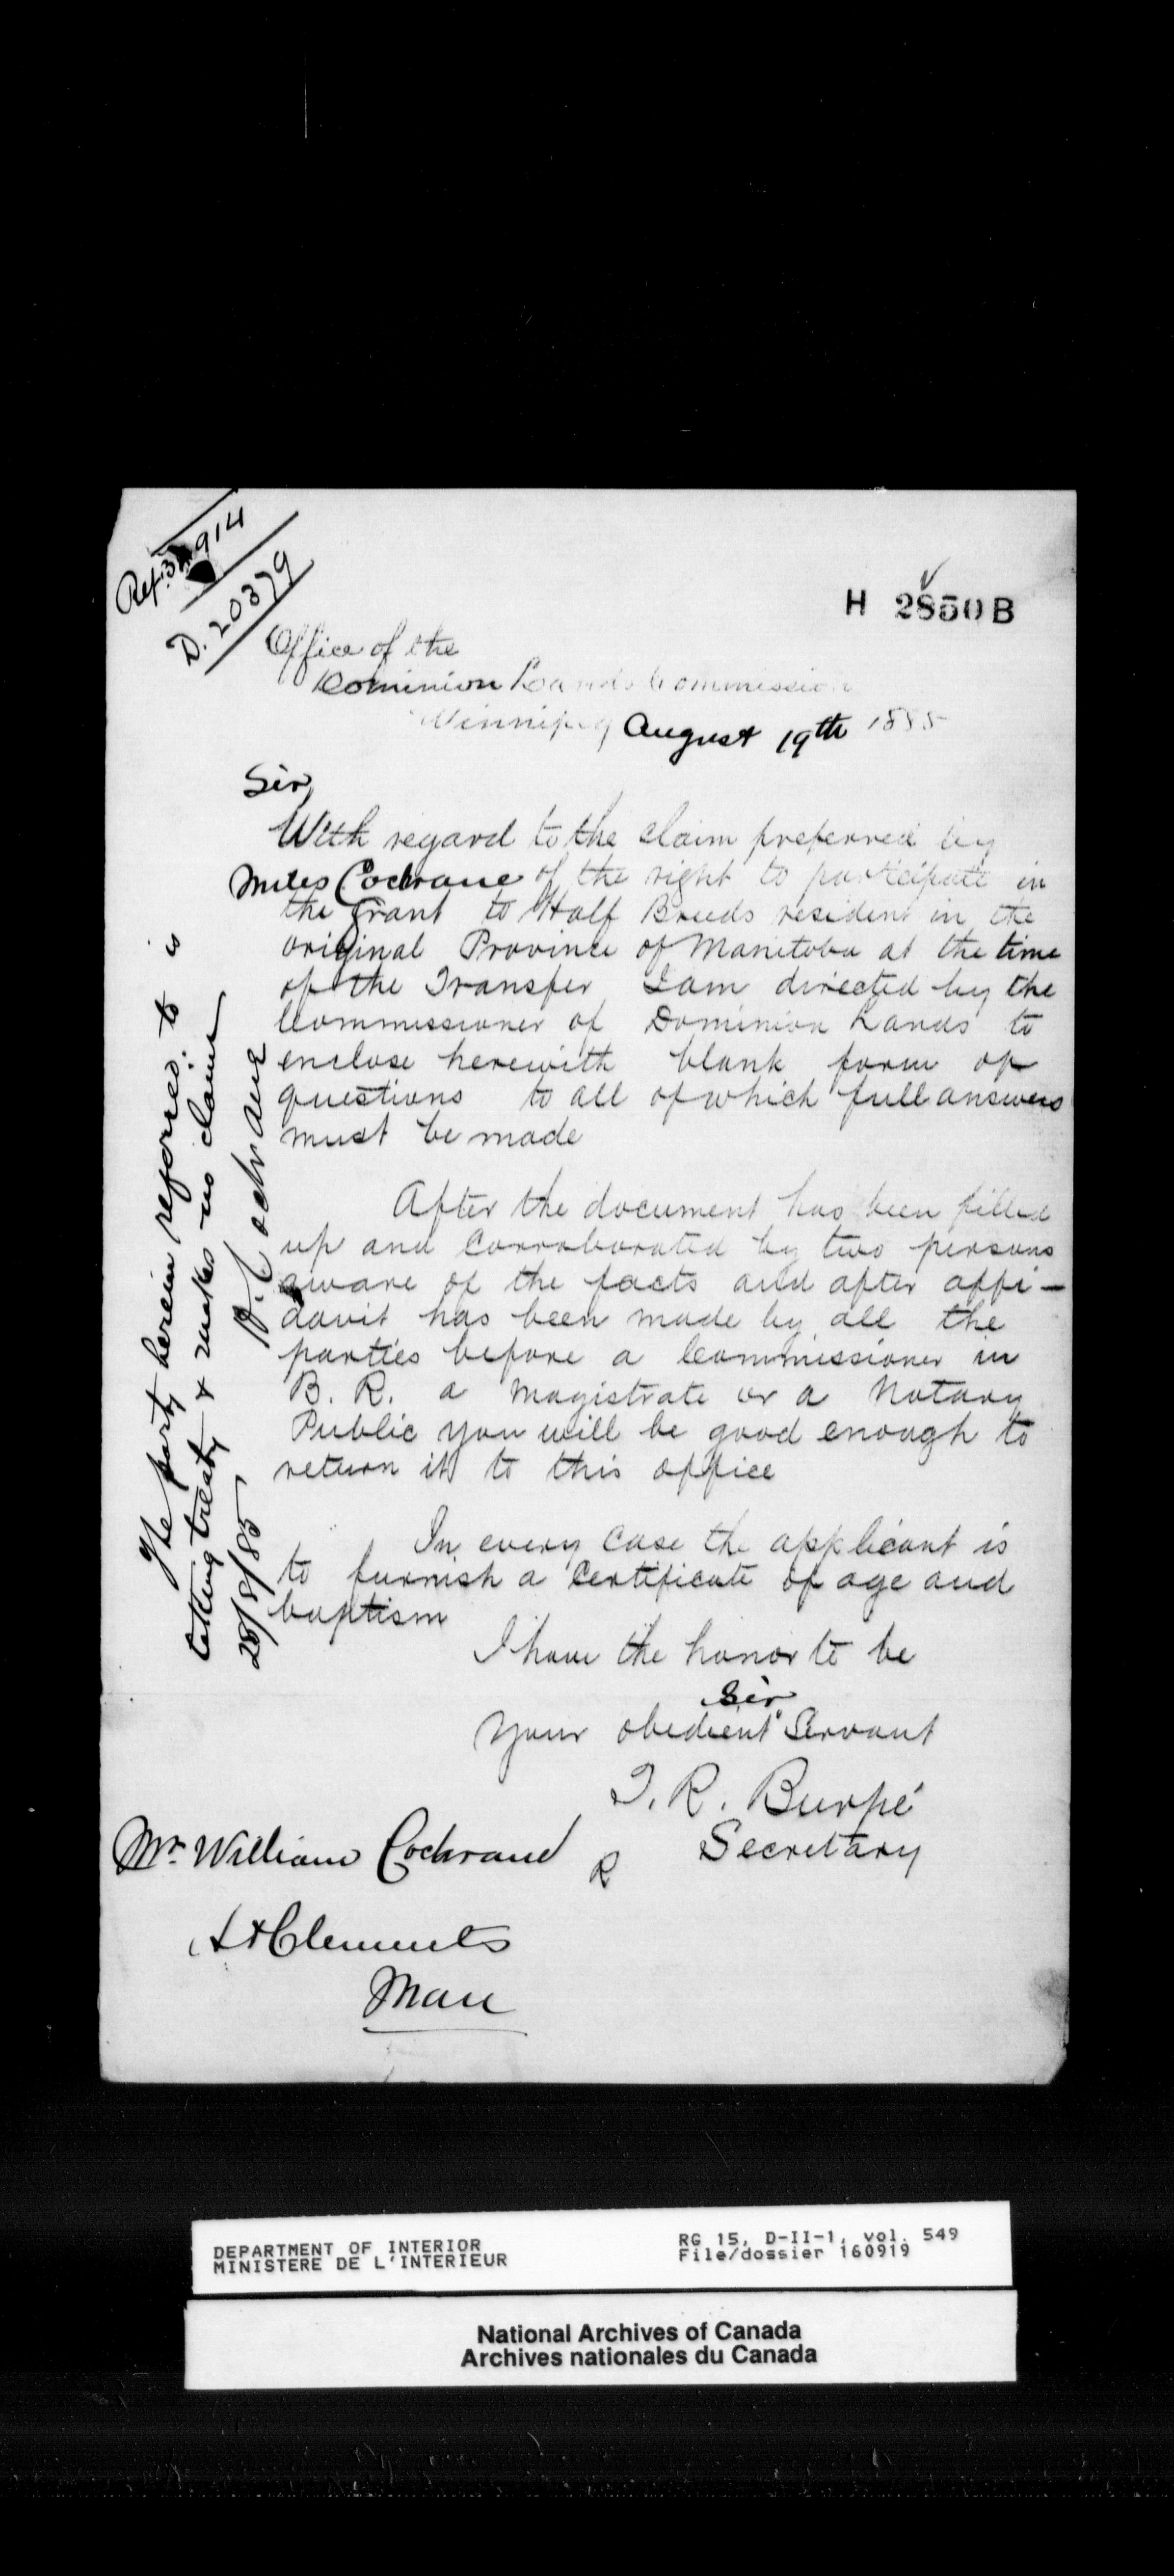 Ref. 914
D. 20379
H 2850 B
Office of the
Dominion Lands Commission
Winnipeg August 19th 1885
Sir,
With regard to the claim preferred by
Miles Cochrane of the right to participate in
the Grant to Half Breeds resident in the
original Province of Manitoba at the time
of the Transfer I am directed by the
Commissioner of Dominion Lands to
enclose herewith blank form of
questions to all of which full answers
must be made
After the document has been filled
up and corroborated by two persons
aware of the facts and after affi-
davit has been made by all the
parties before a Commissioner in
B. R. a Magistrate or a Notary
Public you will be good enough to
return it to this office
In every case the applicant is
to furnish a Certificate of age and
baptism
I have the honor to be
Sir
Your obedient Servant
T. R. Burpé
Secretary
Mr. William Cochrane
R
St Clements
Man
The party herein referred to is
taking treaty & makes no claim
Cochrane
28/8/85
DEPARTMENT OF INTERIOR
MINISTERE DE L'INTERIEUR
RG 15, D-II-1, vol. 549
File/dossier 160919
National Archives of Canada
Archives nationales du Canada